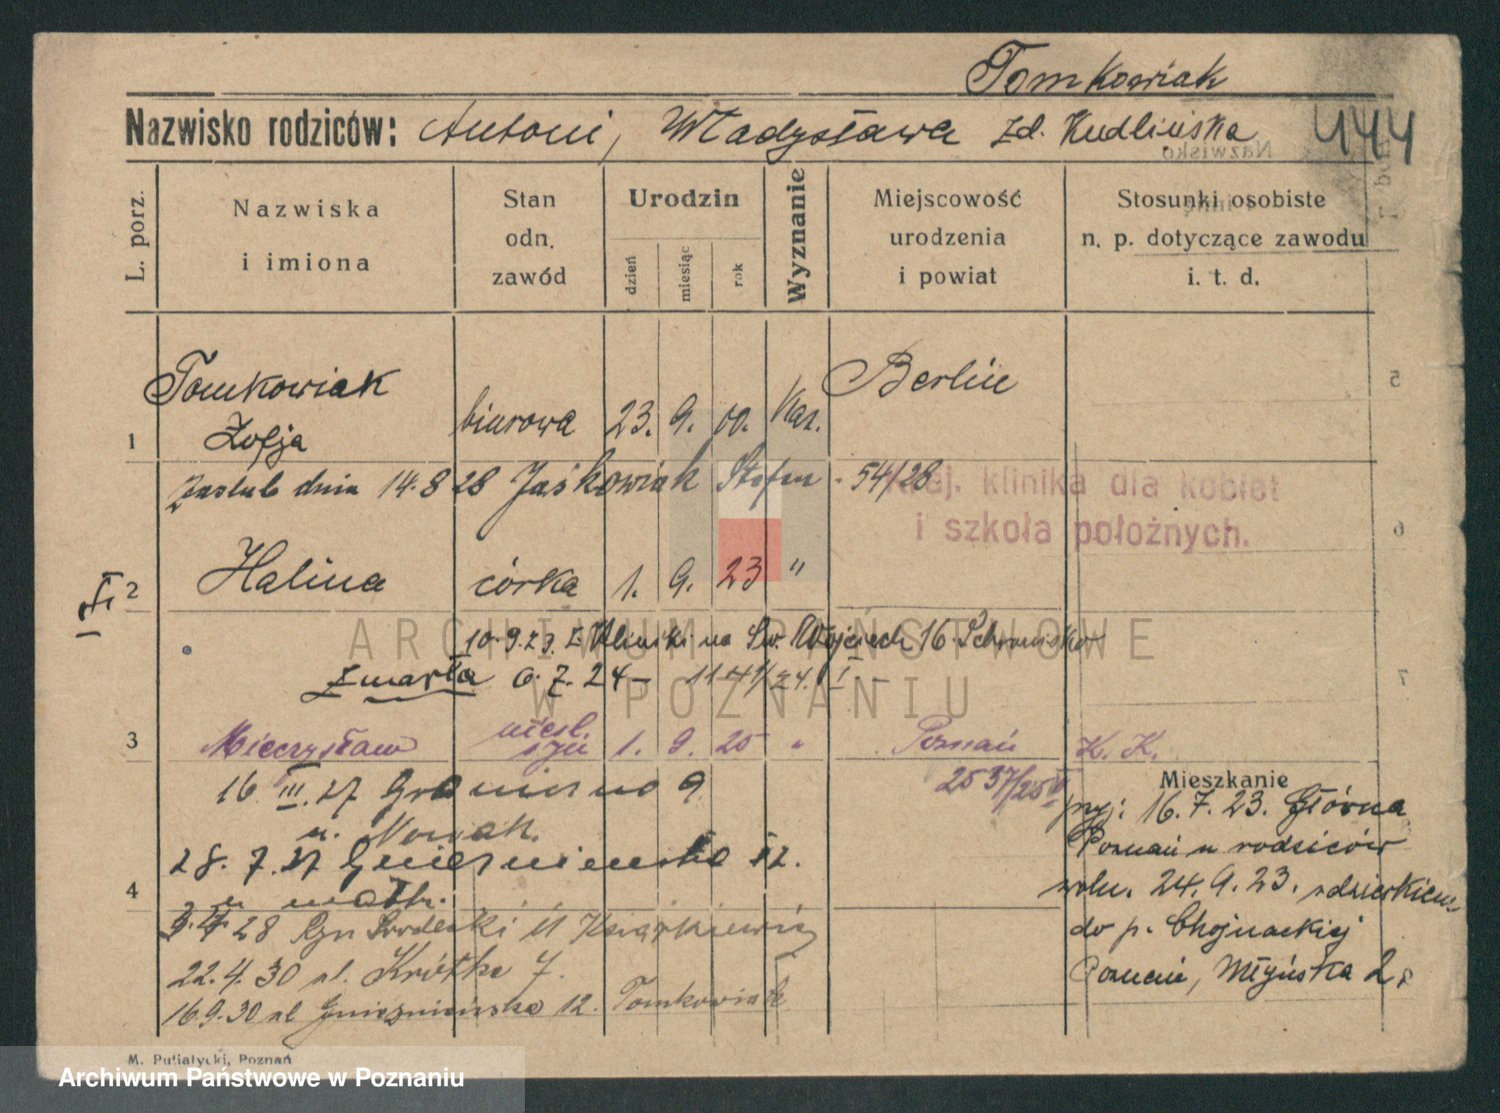 Tomkowiak
Nazwisko rodziców: Antoni, Władysława zd. Kudlińska 444
Nazwisko
L. porz.
Nazwiska
i imiona
Stan
odn.
zawód
Urodzin
dzień
miesiąc
rok
Wyznanie
Miejscowość
urodzenia
i powiat
Stosunki osobiste
n. p. dotyczące zawodu
i. t. d.
1 Tomkowiak
Zofja
biurowa 23. 9. 00. Kat. Berlin
5
Zaslub dnia 14.8 28 Jaśkowiak Stefan 54/28
Kraj. klinika dla kobiet
i szkoła położnych.
6
2 Halina córka 1. 9. 23 "
10.9.23. z Kliniki na Św. Wojciech 16
Zmarła 6.7.24 –
7
3 Mieczysław nieśl. syn 1. 9. 25 " Poznań K. K.
2537/25
16. III. 27 Graniczna 9
u. Nowak.
28. 7. 27 Gnieźnieńska 12.
4 u matki.
28 Ryn Śródecki
22.4.30 ul. Krótka 7.
16.9.30 ul Gnieźnieńska 12. Tomkowiak
Mieszkanie
prz: 16.7.23. Główna
Poznań u rodziców
24.9.23. z dzieckiem
do p. Chojnackiej
Poznań, Młyńska 2
M. Putiatycki, Poznań
ARCHIWUM PAŃSTWOWE
W POZNANIU
Archiwum Państwowe w Poznaniu